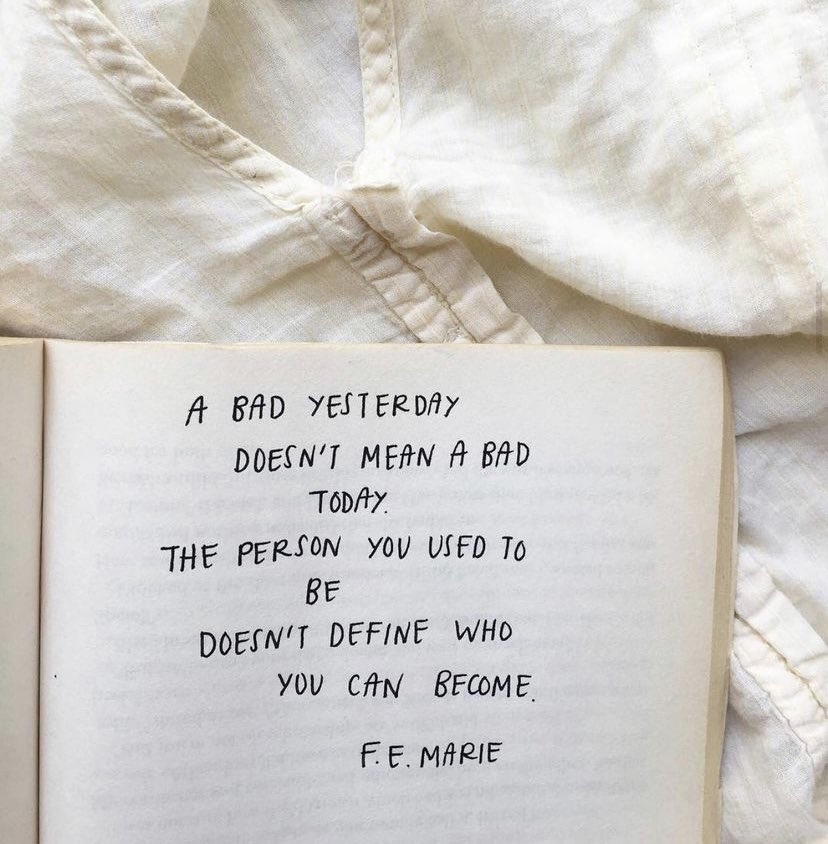 A BAD YESTERDAY
DOESN'T MEAN A BAD
TODAY.
THE PERSON YOU USED TO
BE
DOESN'T DEFINE WHO
YOU CAN BECOME.
F.E. MARIE